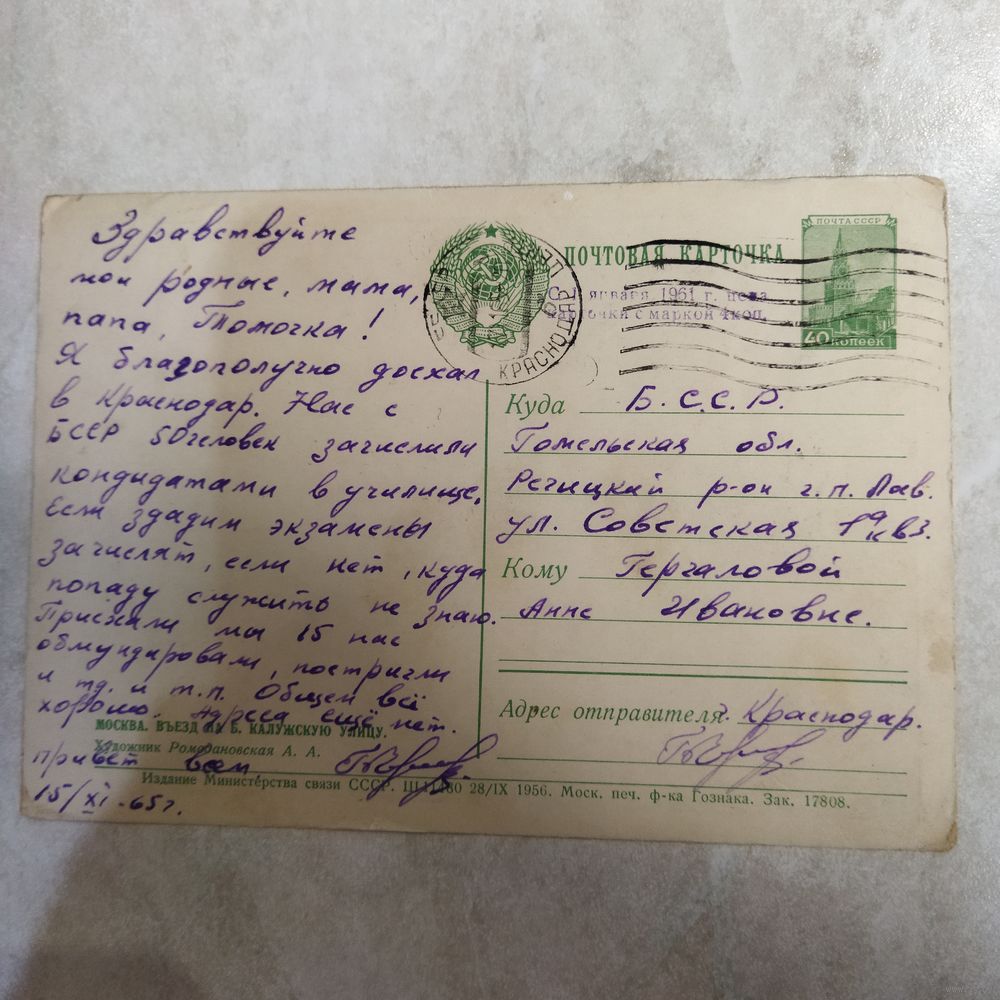 Здравствуйте
мои родные, мама,
папа, Томочка!
Я благополучно доехал
в Краснодар. Нас с
БССР 50 человек зачислили
кондидатами в училище,
Если здадим экзамены
зачислят, если нет, куда
попаду служить не знаю.
Приехали мы 15 нас
обмундировали, постригли
и тд. и т.п. Общем всё
хорошо. Адреса ещё нет.
МОСКВА. ВЪЕЗД НА Б. КАЛУЖСКУЮ УЛИЦУ.
Художник Ромодановская А. А.
привет всем
15/XI-65г.
ПОЧТОВАЯ КАРТОЧКА
ПОЧТА СССР
40 КОПЕЕК
С 1 января 1961 г. цена
карточки с маркой 4коп.
КРАСНОДАР
Куда Б.С.С.Р.
Гомельская обл.
Речицкий р-он г.п. Вас.
ул. Советская 19 кв3.
Кому Гергаловой
Анне Ивановне.
Адрес отправителя г. Краснодар.
Издание Министерства связи СССР. 28/IX 1956. Моск. печ. ф-ка Гознака. Зак. 17808.